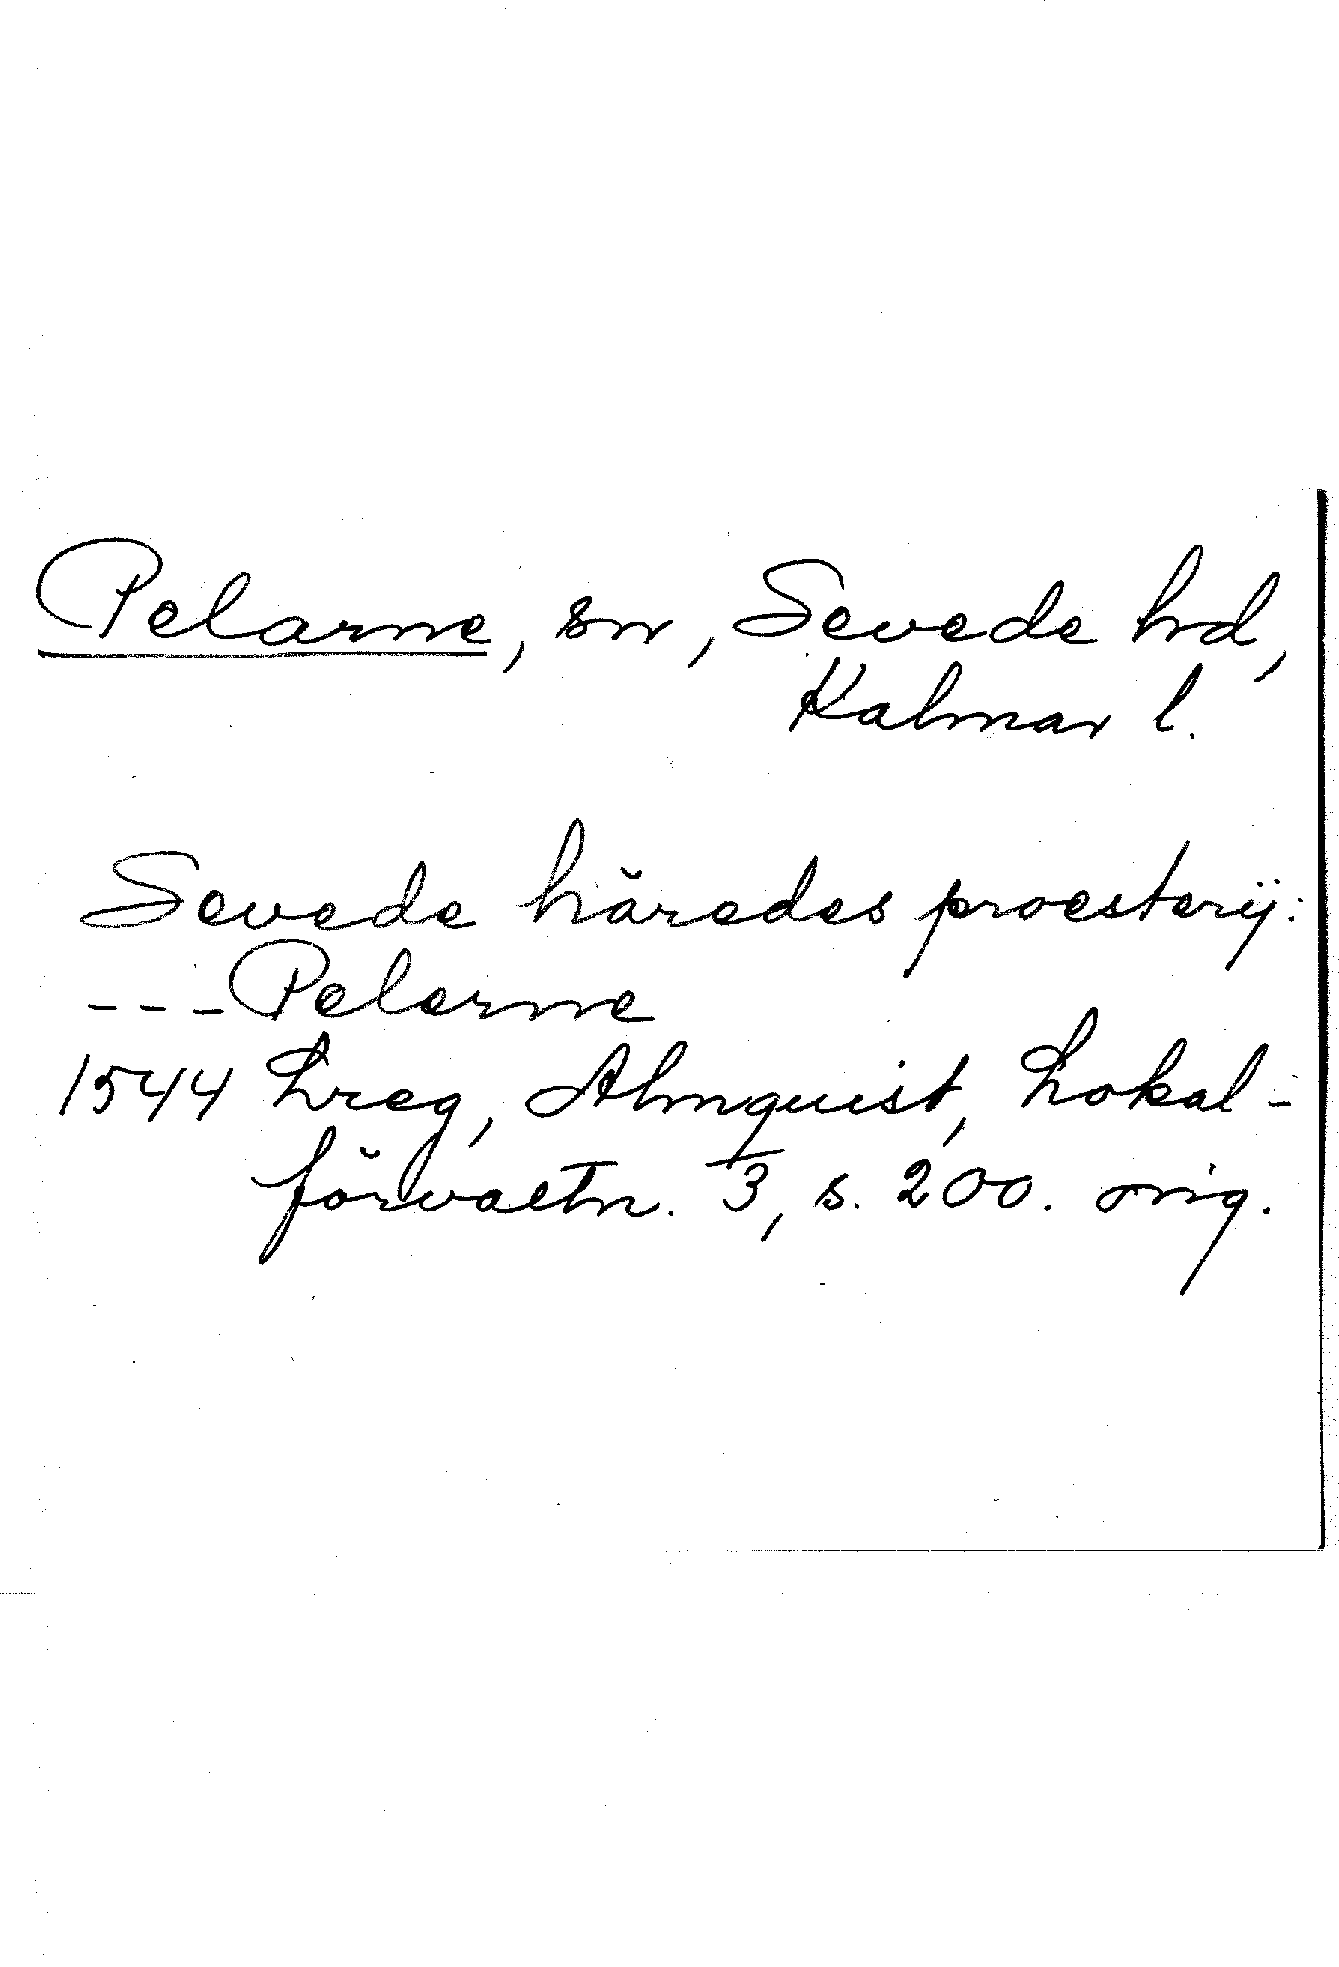 Pelarne, sn, Sevede hd,
Kalmar l.
Sevede häredes proesterij:
--- Pelerne
1544 Lreg, Almquist, Lokal-
förvaltn. 3, s. 200. orig.